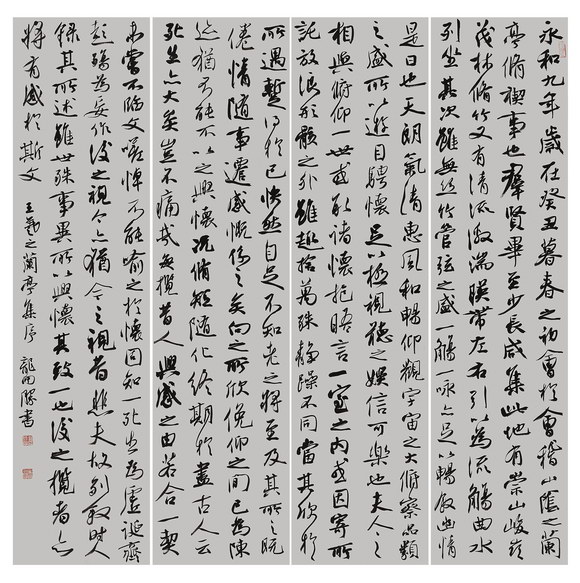 永和九年歲在癸丑暮春之初會於會稽山陰之蘭
亭脩禊事也群賢畢至少長咸集此地有崇山峻嶺
茂林脩竹又有清流激湍暎帶左右引以為流觴曲水
列坐其次雖無絲竹管弦之盛一觴一詠亦足以暢叙幽情
是日也天朗氣清惠風和暢仰觀宇宙之大俯察品類
之盛所以遊目騁懷足以極視聽之娛信可樂也夫人之
相與俯仰一世或取諸懷抱晤言一室之內或因寄所
託放浪形骸之外雖趣捨萬殊靜躁不同當其欣於
所遇暫得於己快然自足不知老之將至及其所之既
倦情隨事遷感慨係之矣向之所欣俛仰之間已為陳
迹猶不能不以之興懷況脩短隨化終期於盡古人云
死生亦大矣豈不痛哉每攬昔人興感之由若合一契
未嘗不臨文嗟悼不能喻之於懷固知一死生為虛誕齊
彭殤為妄作後之視今亦猶今之視昔悲夫故列敘時人
錄其所述雖世殊事異所以興懷其致一也後之攬者亦
將有感於斯文 王羲之蘭亭集序 書